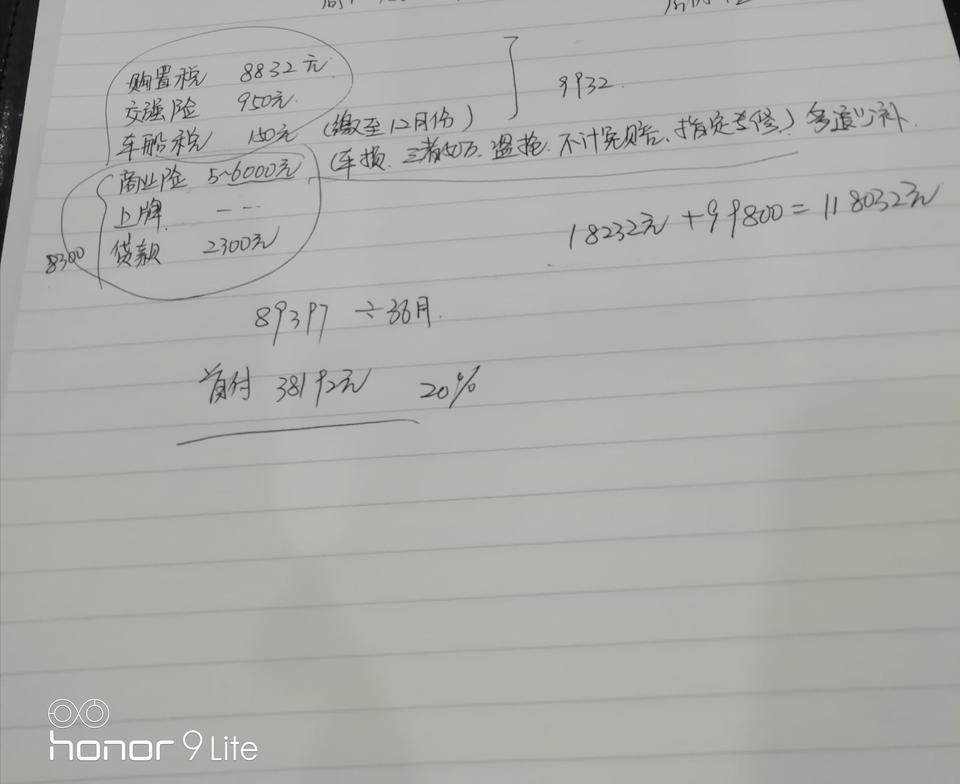 购置税 8832元
交强险 950元 ] 9932.
车船税 150元 (缴至12月份)
商业险 5~6000元 (车损. 三者50万. 盗抢. 不计免赔、指定专修) 多退少补.
上牌 ---
8300 贷款 2300元
18232元+99800=118032元
89397 ÷36月.
首付 38192元 20%
honor 9 Lite